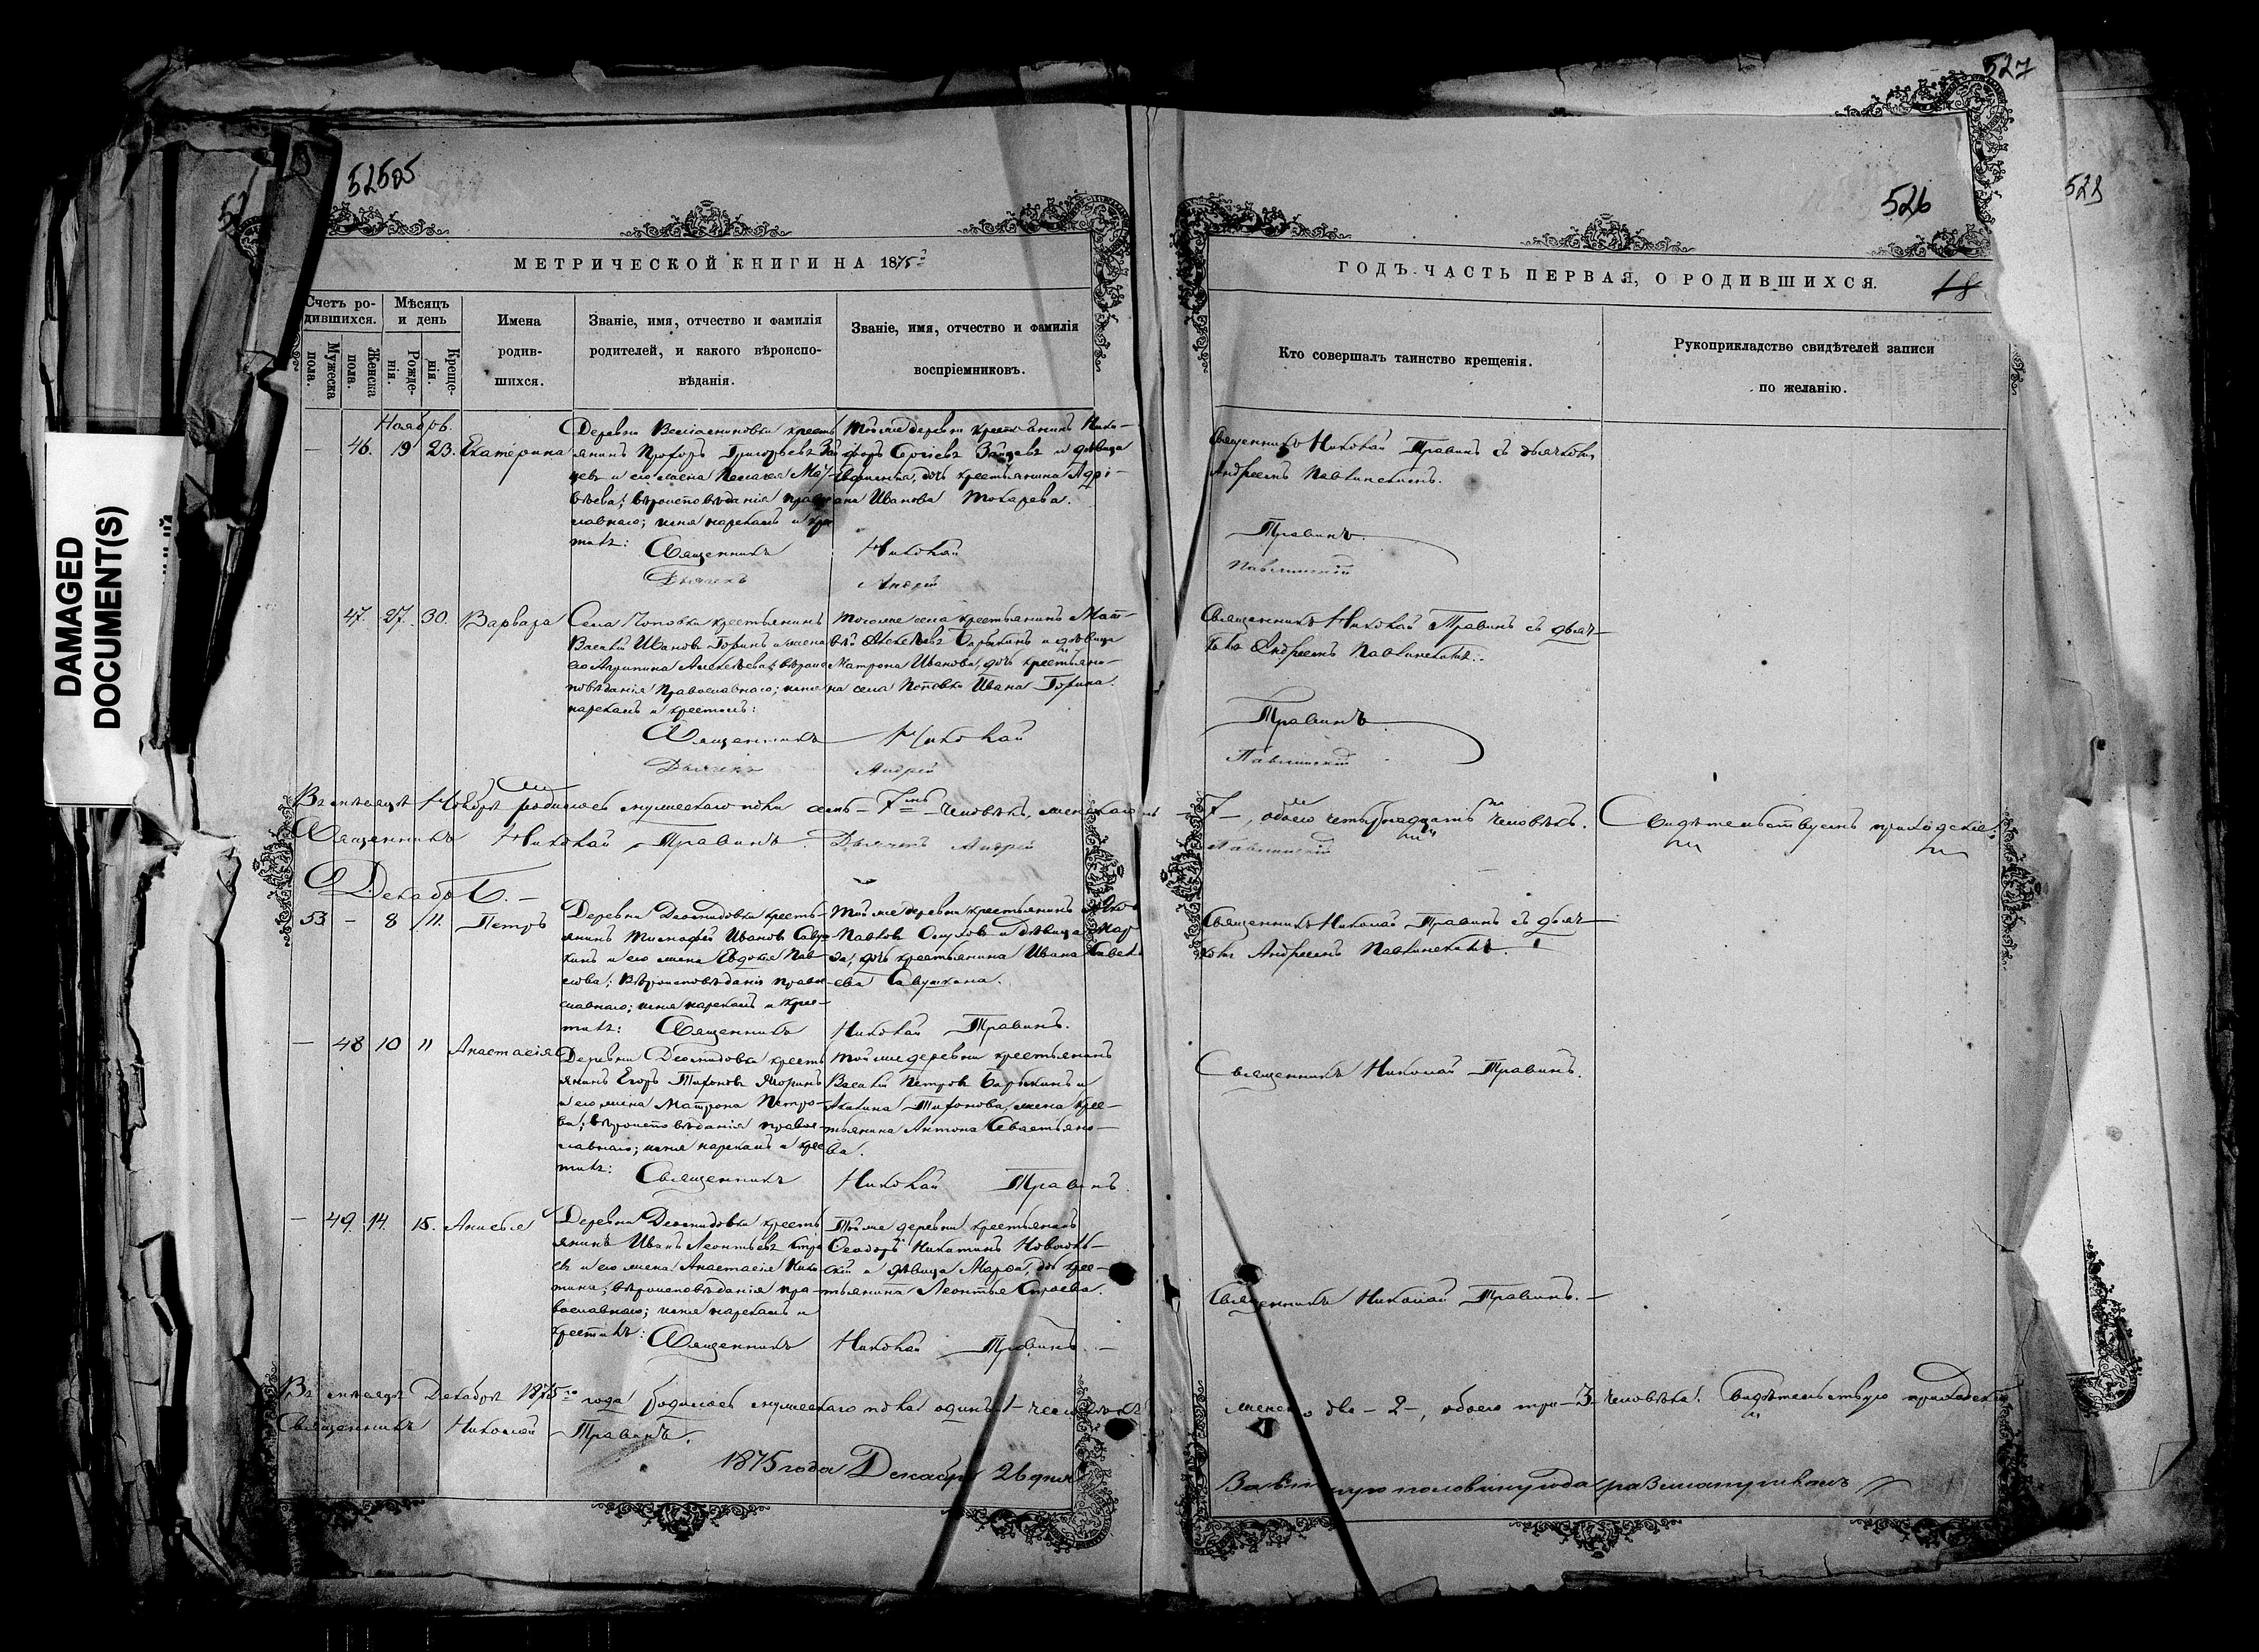 527
52505
526
МЕТРИЧЕСКОЙ КНИГИ НА 1875
ГОДЪ ЧАСТЬ ПЕРВАЯ, О РОДИВШИХСЯ.
18
Счетъ родившихся.
Мужеска пола.
Женска пола.
Мѣсяцъ и день
Рожденія.
Крещенія.
Имена
родив-
шихся.
Званіе, имя, отчество и фамилія
родителей, и какого вѣроиспо-
вѣданія.
Званіе, имя, отчество и фамилія
воспріемниковъ.
Кто совершалъ таинство крещенія.
Рукоприкладство свидѣтелей записи
по желанію.
DAMAGED
DOCUMENT(S)
Ноябрь.
— 46. 19 23. Екатерина
Деревни крестъ
янинъ Прохоръ Григорьевъ
и его жена Пелагея
вѣроисповѣданія право
славнаго; имя нарекалъ и кре
тилъ: Священникъ Николай
Дьячекъ Андрей
Тойже деревни крестьянинъ
Сергіевъ Зайцевъ и дѣвица
дочь крестьянина
Иванова Токарева.
Священникъ Николай Травинъ съ дьячкомъ
Андреемъ Павлинскимъ.
Травинъ
Павлинскій
47. 27. 30. Варвара
Села Поповки крестьянинъ
Василій Ивановъ Горинъ и жена
его Агрипина Алексѣева; вѣроис
повѣданія Православнаго; имя
нарекалъ и крестилъ:
Священникъ Николай
Дьячекъ Андрей
тогоже села крестьянинъ Мат-
вѣй Алексѣевъ Барыкинъ и дѣвица
Матрона Иванова, дочь крестьяни-
на села Поповки Ивана Горина.
Священникъ Николай Травинъ съ дьяч-
комъ Андреемъ Павлинскимъ.
Травинъ
Павлинскій
Въ мѣсяцѣ Ноябрѣ родилось мужескаго пола семь - 7мь человѣкъ, женскаго - 7 -, обоего четырнадцать человѣкъ. Свидѣтельствуемъ приходскіе:
Священникъ Николай Травинъ. Дьячекъ Андрей Павлинскій
Декабрь. —
53 — 8 11. Петръ
Деревни Деомидовки кресть-
янинъ Тимофей Ивановъ Саву-
кинъ и его жена Евдокія Пав-
лова; вѣроисповѣданія право-
славнаго; имя нарекалъ и крес-
тилъ: Священникъ Николай Травинъ.
Тойже деревни крестьянинъ
Павловъ и дѣвица
дочь крестьянина Ивана Савель
ева Савушкина.
Священникъ Николай Травинъ съ дьяч-
комъ Андреемъ Павлинскимъ.
— 48 10 11 Анастасія
Деревни Деомидовки кресть
янинъ Егоръ Тихоновъ
и его жена Матрона Петро-
ва; вѣроисповѣданія право-
славнаго; имя нарекалъ и крес
тилъ: Священникъ Николай Травинъ.
тойже деревни крестьянинъ
Василій Петровъ Барыкинъ и
Акилина Тихонова, жена крес-
тьянина Антона Севастьяно-
ва.
Священникъ Николай Травинъ.
— 49. 14. 15. Анисья
Деревни Деомидовки кресть
янинъ Иванъ Леонтьевъ Стро
евъ и его жена Анастасія Ники
тина; вѣроисповѣданія пра-
вославнаго; имя нарекалъ и
крестилъ: Священникъ Николай Травинъ. —
Тойже деревни крестьянинъ
Ѳеодоръ Никитинъ
и дѣвица Марѳа, дочь крес-
тьянина Леонтья Строева.
Священникъ Николай Травинъ. —
Въ мѣсяцѣ Декабрѣ 1875го года родилось мужескаго пола одинъ -1- человѣкъ женскаго два - 2 -, обоего три - 3 человѣка. Свидѣтельствую приходскій
Священникъ Николай Травинъ.
1875 года Декабря 26 дня
За вторую половину года разсматривалъ